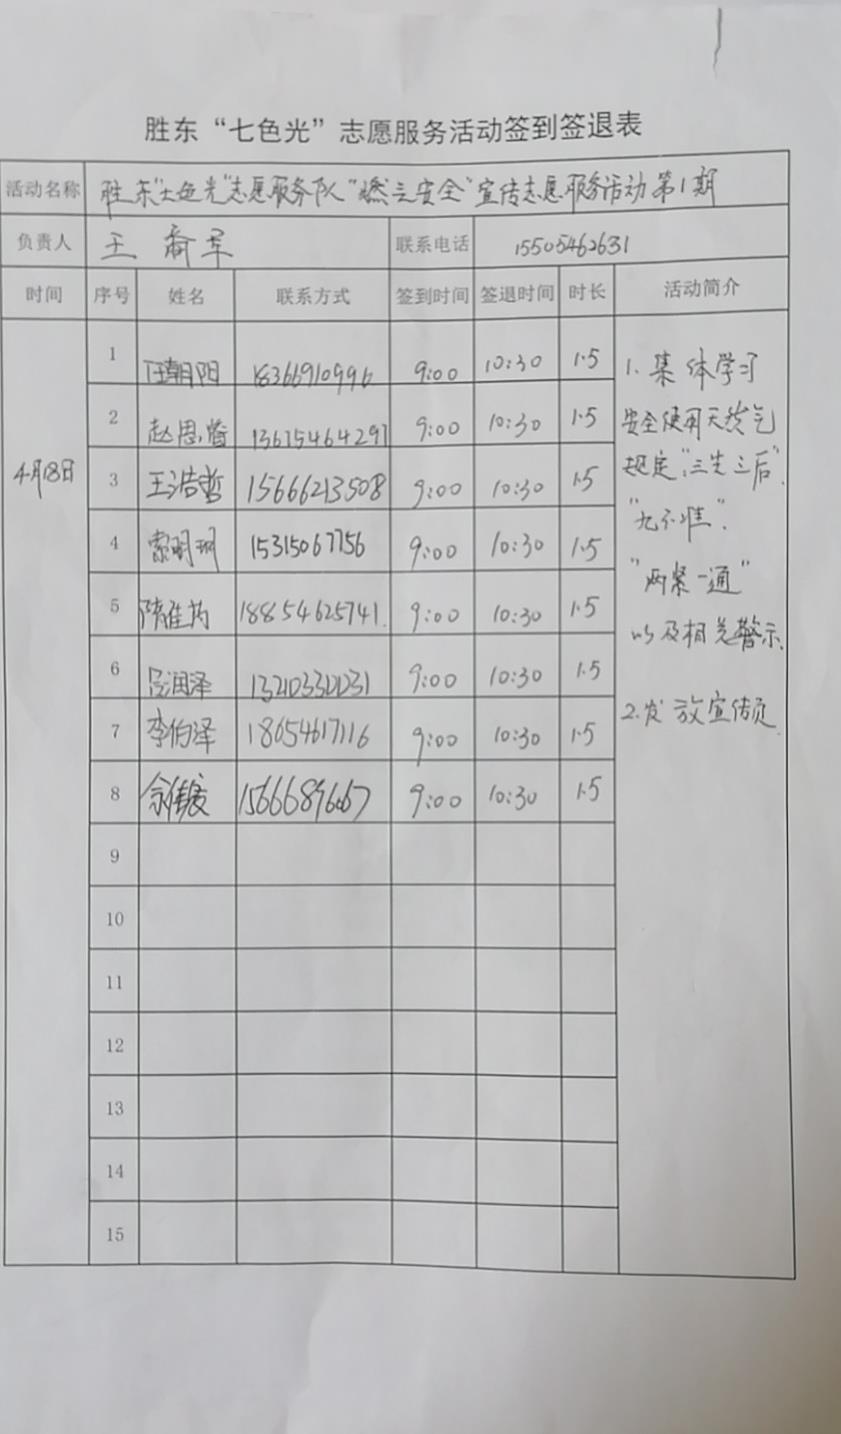 胜东“七色光”志愿服务活动签到签退表
活动名称 胜东“七色光”志愿服务队“燃气安全”宣传志愿服务活动第1期
负责人 王 乔军 联系电话 15505462631
时间 序号 姓名 联系方式 签到时间 签退时间 时长 活动简介
4月18日
1 汪朝阳 18366910996 9:00 10:30 1.5
2 赵思 13615464291 9:00 10:30 1.5
3 王浩哲 15666213508 9:00 10:30 1.5
4 索明珂 15315067756 9:00 10:30 1.5
5 隋佳芮 18854625741 9:00 10:30 1.5
6 吕润泽 9:00 10:30 1.5
7 李伯泽 18654617116 9:00 10:30 1.5
8 9:00 10:30 1.5
9
10
11
12
13
14
15
1.集体学习
安全使用天然气
规定“三先三后”.
“九不准”.
“两紧一通”
以及相关警示.
2.发放宣传页.